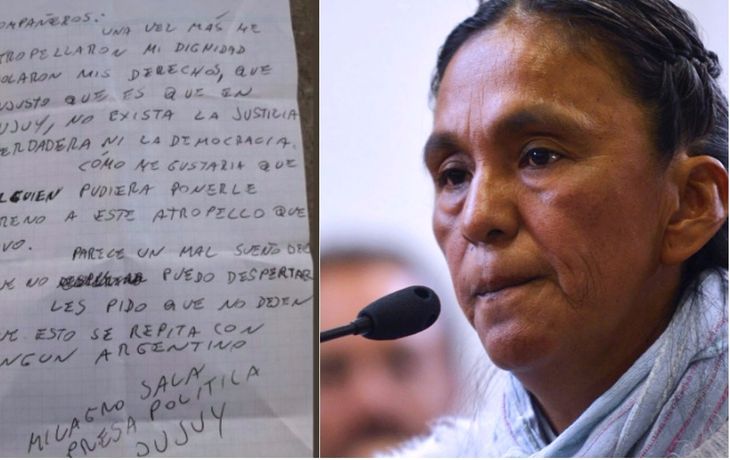 OMPAÑEROS:
UNA VEZ MÁS ME
TROPELLARON MI DIGNIDAD
OLARON MIS DERECHOS, QUE
JUSTO QUE ES QUE EN
UJUY, NO EXISTA LA JUSTICIA
ERDADERA NI LA DEMOCRACIA.
CÓMO ME GUSTARIA QUE
LGUIEN PUDIERA PONERLE
RENO A ESTE ATROPELLO QUE
VO.
PARECE UN MAL SUEÑO DEL
UE NO PUEDO DESPERTAR
LES PIDO QUE NO DEJEN
UE ESTO SE REPITA CON
NGUN ARGENTINO
MILAGRO SALA
PRESA POLITICA
JUJUY